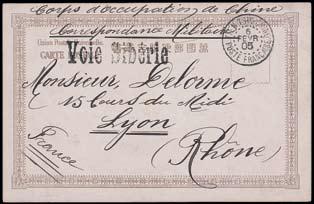 Corps d'occupation de Chine
Correspondance Militaire
Union Postale
CARTE
Voie Sibérie
6
FEVR
05
POSTE FRANÇAISE
Monsieur Delorme
15 Cours du Midi
Lyon
(Rhône)
France